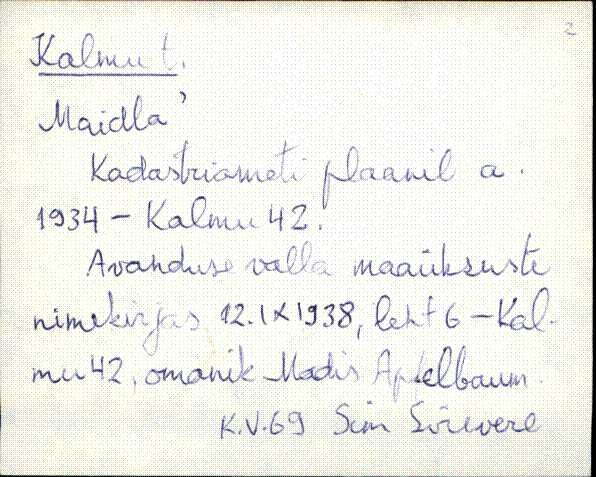 2
Kalmu t.
Maidla'
Kadastriameti plaanil a.
1934 - Kalmu 42.
Avanduse valla maaüksuste
nimekirjas 12.IX 1938, leht 6 - Kal-
mu 42, omanik Madis Apfelbaum.
K.V.69 Siim